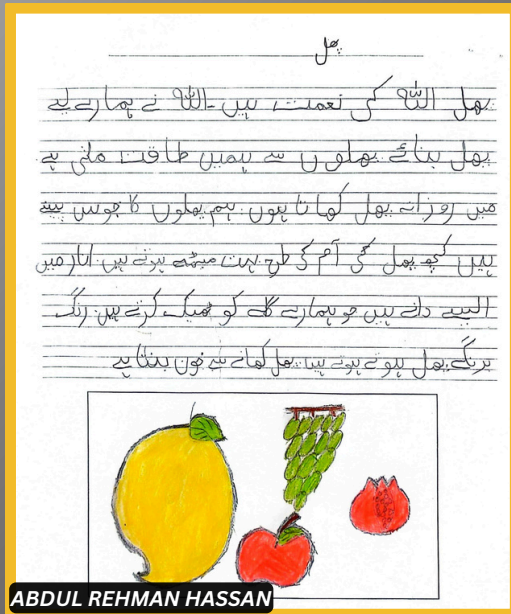 پھل
پھل اللہ کی نعمت ہیں۔اللہ نے ہمارے لیے
پھل بنائے پھلوں سے ہمیں طاقت ملتی ہے
میں روزانہ پھل کھاتا ہوں۔ ہم پھلوں کا جوس پیتے
ہیں کچھ پھل آم کی طرح بہت میٹھے ہوتے ہیں انار میں
ایسے دانے ہیں جو ہمارے گلے کو ٹھیک کرتے ہیں۔ رنگ
برنگے پھل ہوتے ہوتے ہیں۔ پھل کھانے سے خون بنتا ہے
ABDUL REHMAN HASSAN